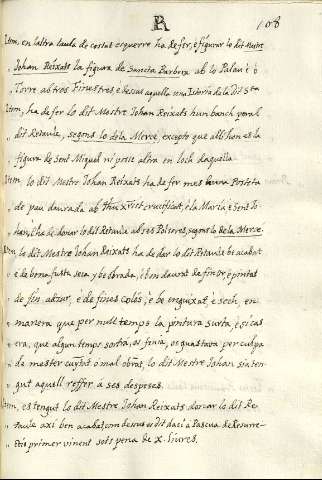 R
108
Item, en laltra taula de costat esquerre ha de fer, e figurar lo dit Mestre
Johan Reixats la figura de Sancta Barbera ab lo Palau é ó
Torre ab tres Finestres, e desus aquella una Istoria de la dit Sta
Item, ha de fer lo dit Mestre Johan Reixats hun banch peral
dit Retaule, segons lo dela Merce, excepto que allí hon es la
figura de Sent Miquel ni posse altra en loch daquella
Item, lo dit Mestre Johan Reixats ha de fer mes una Porteta
de pau daurada ab Jhu Xrist crucificat, é la Maria, e Sent Jo
han, é ha de donar lo dit Retaule ab ses Polseres, segons lo de la Merce.
Item lo dit Mestre Johan Reixats ha de dar lo dit Retaule be acabat
e de bona fusta seca, y be obrada, é ben daurat de fin or, é pintat
de fin adzur, é de fines colós, é be enguixat, e sech, en
manera que per null temps la pintura surta, é si cas
era, que algun temps sortá, os fena, os guastava, per culpa
de mester cuyta ó mal obrat, lo dit Mestre Johan sia ten-
gut aquell reffer á ses despeses.
Item, es tengut lo dit Mestre Johan Reixats donar lo dit Re-
taule axi ben acabat com desus es dit dací a Pascua de Resurre-
ctio primer vinent sots pena de X. liures.